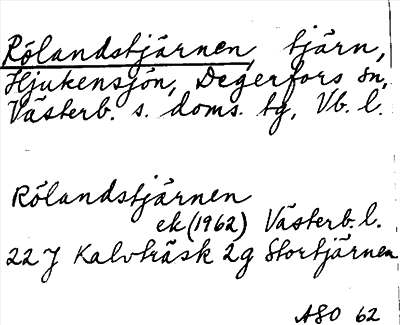 Rölandstjärnen, tjärn,
Hjukensjön, Degerfors sn,
Västerb. s. doms. tg, Vb. l.
Rölandstjärnen
ek (1962) Västerb. l.
22 J Kalvträsk 2g Stortjärnen
ASO 62